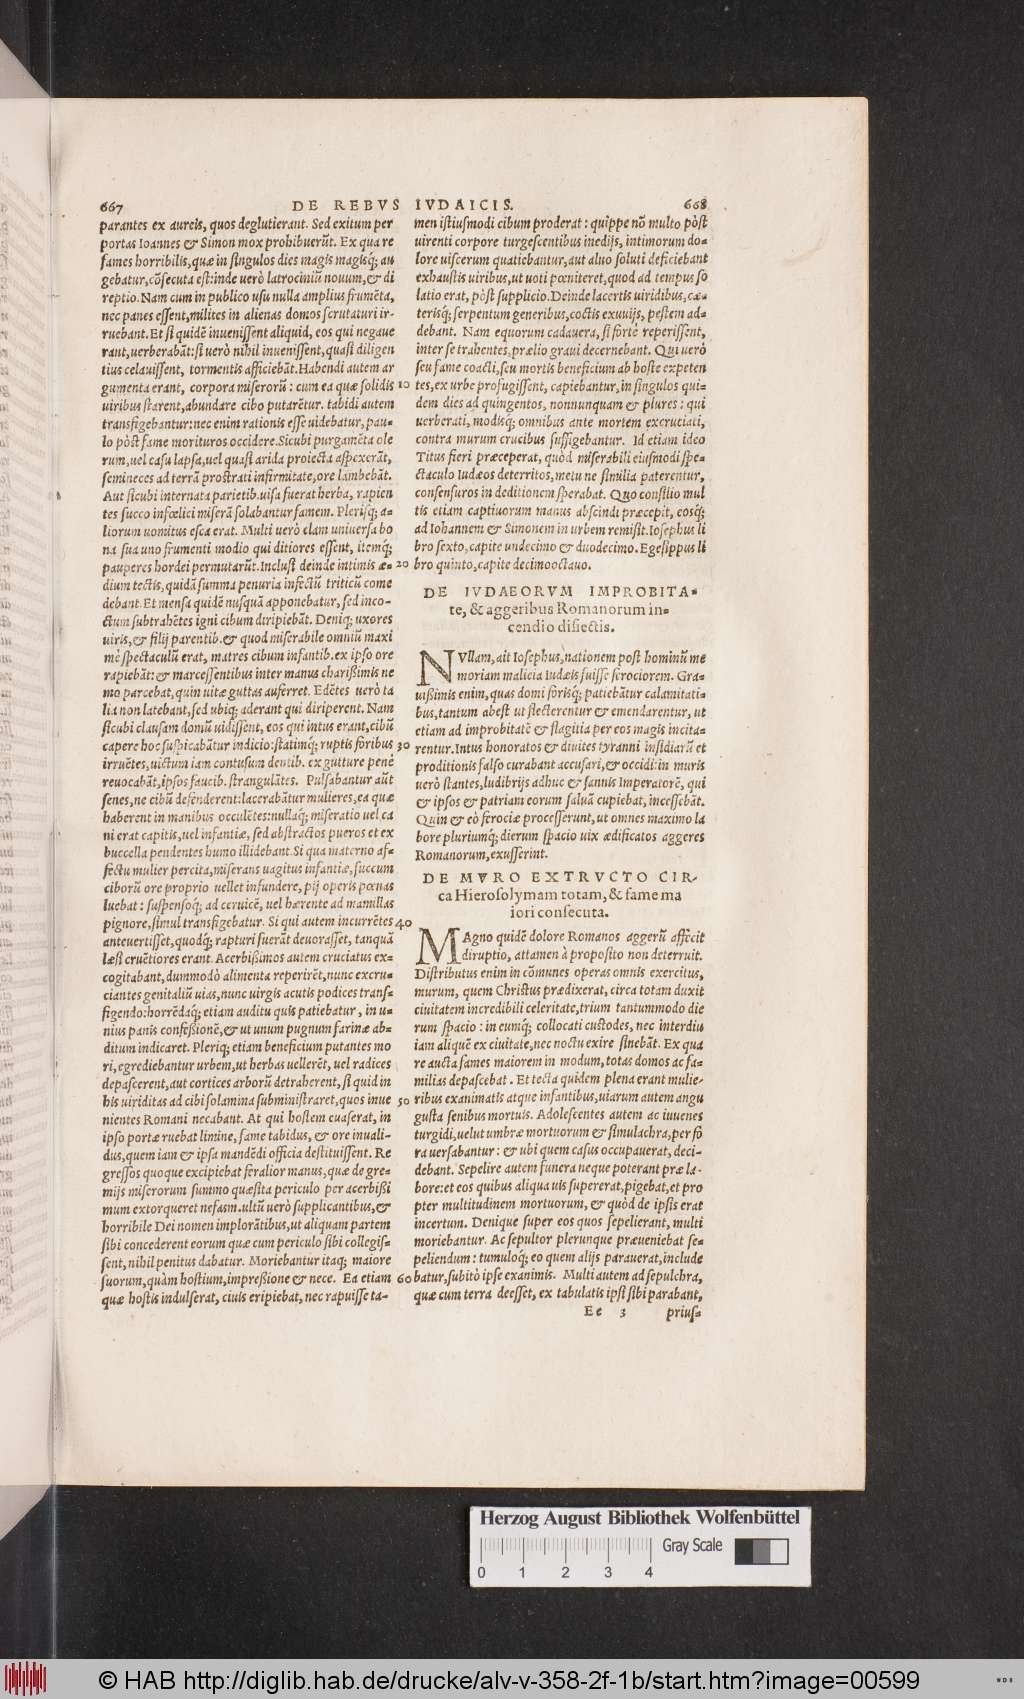 667 DE REBVS IVDAICIS. 668
parantes ex aureis, quos deglutierant. Sed exitum per
portas Ioannes & Simon mox prohibuerūt. Ex qua re
fames horribilis, quæ in singulos dies magis magisq́; au
gebatur, cōsecuta est: inde uerò latrociniū nouum, & di
reptio. Nam cum in publico usu nulla amplius frumēta,
nec panes essent, milites in alienas domos scrutaturi ir-
ruebant. Et si quidē inuenissent aliquid, eos qui negaue
rant, uerberabāt: si uerò nihil inuenissent, quasi diligen
tius celauissent, tormentis afficiebāt. Habendi autem ar
gumenta erant, corpora miserorū: cum ea quæ solidis 10
uiribus starent, abundare cibo putarētur. tabidi autem
transfigebantur: nec enim rationis esse uidebatur, pau-
lo pòst fame morituros occidere. Sicubi purgamēta ole
rum, uel casu lapsa, uel quasi arida proiecta aspexerāt,
semineces ad terrā prostrati infirmitate, ore lambebāt.
Aut sicubi internata parietib. uisa fuerat herba, rapien
tes succo infœlici miserā solabantur famem. Plerisq́; a-
liorum uomitus esca erat. Multi uerò clam uniuersa bo
na sua uno frumenti modio qui ditiores essent, itemq́;
pauperes hordei permutarūt. Inclusi deinde intimis æ- 20
dium tectis, quidā summa penuria infectū triticū come
debant. Et mensa quidē nusquā apponebatur, sed inco-
ctum subtrahētes igni cibum diripiebāt. Deniq; uxores
uiris, & filij parentib. & quod miserabile omniū maxi
mè spectaculū erat, matres cibum infantib. ex ipso ore
rapiebāt: & marcessentibus inter manus charißimis ne
mo parcebat, quin uitæ guttas auferret. Edētes uerò ta
lia non latebant, sed ubiq; aderant qui diriperent. Nam
sicubi clausam domū uidissent, eos qui intus erant, cibū
capere hoc suspicabātur indicio: statimq́; ruptis foribus 30
irruētes, uictum iam contusum dentib. ex gutture penè
reuocabāt, ipsos faucib. strangulātes. Pulsabantur aūt
senes, ne cibū defenderent: lacerabātur mulieres, ea quæ
haberent in manibus occulētes: nullaq́; miseratio uel ca
ni erat capitis, uel infantiæ, sed abstractos pueros et ex
buccella pendentes humo illidebant. Si qua materno af-
fectu mulier percita, miserans uagitus infantiæ, succum
ciborū ore proprio uellet infundere, pij operis pœnas
luebat: suspensoq́; ad ceruicē, uel hærente ad mamillas
pignore, simul transfigebatur. Si qui autem incurrētes 40
anteuertisset, quodq́; rapturi fuerāt deuorasset, tanquā
læsi cruētiores erant. Acerbißimos autem cruciatus ex-
cogitabant, dummodò alimenta reperirēt, nunc excru-
ciantes genitaliū uias, nunc uirgis acutis podices trans-
figendo: horrēdaq́; etiam auditu quis patiebatur, in u-
nius panis confeßionē, & ut unum pugnum farinæ ab-
ditum indicaret. Pleriq; etiam beneficium putantes mo
ri, egrediebantur urbem, ut herbas uellerēt, uel radices
depascerent, aut cortices arborū detraherent, si quid in
his uiriditas ad cibi solamina subministraret, quos inue 50
nientes Romani necabant. At qui hostem euaserat, in
ipso portæ ruebat limine, fame tabidus, & ore inuali-
dus, quem iam & ipsa mandēdi officia destituissent. Re
gressos quoque excipiebat feralior manus, quæ de gre-
mijs miserorum summo quæsita periculo per acerbißi
mum extorqueret nefasm. ultū uerò supplicantibus, &
horribile Dei nomen implorātibus, ut aliquam partem
sibi concederent eorum quæ cum periculo sibi collegis-
sent, nihil penitus dabatur. Moriebantur itaq; maiore
suorum, quàm hostium, impreßione & nece. Ea etiam 60
quæ hostis indulserat, ciuis eripiebat, nec rapuisse ta-
men istiusmodi cibum proderat: quippe nō multo pòst
uirenti corpore turgescentibus inedijs, intimorum do-
lore uiscerum quatiebantur, aut aluo soluti deficiebant
exhaustis uiribus, ut uoti pœniteret, quod ad tempus so
latio erat, pòst supplicio. Deinde lacertis uiridibus, cæ-
terisq́; serpentum generibus, coctis exuuijs, pestem ad-
debant. Nam equorum cadauera, si fortè reperissent,
inter se trahentes, prælio graui decernebant. Qui uerò
seu fame coacti, seu mortis beneficium ab hoste expeten
tes, ex urbe profugissent, capiebantur, in singulos qui-
dem dies ad quingentos, nonnunquam & plures: qui
uerberati, modisq́; omnibus ante mortem excruciati,
contra murum crucibus suffigebantur. Id etiam ideo
Titus fieri præceperat, quòd miserabili eiusmodi spe-
ctaculo Iudæos deterritos, metu ne similia paterentur,
consensuros in deditionem sperabat. Quo consilio mul
tis etiam captiuorum manus abscindi præcepit, eosq́;
ad Iohannem & Simonem in urbem remisit. Iosephus li
bro sexto, capite undecimo & duodecimo. Egesippus li
bro quinto, capite decimooctauo.
DE IVDAEORVM IMPROBITA-
te, & aggeribus Romanorum in-
cendio disiectis.
NVllam, ait Iosephus, nationem post hominū me
moriam malicia Iudæis fuisse ferociorem. Gra-
uißimis enim, quas domi forisq́; patiebātur calamitati-
bus, tantum abest ut flecterentur & emendarentur, ut
etiam ad improbitatē & flagitia per eos magis incita-
rentur. Intus honoratos & diuites tyranni insidiarū et
proditionis falso curabant accusari, & occidi: in muris
uerò stantes, ludibrijs adhuc & sannis Imperatorē, qui
& ipsos & patriam eorum saluā cupiebat, incessebāt.
Quin & eò ferociæ processerunt, ut omnes maximo la
bore pluriumq́; dierum spacio uix ædificatos aggeres
Romanorum, exusserint.
DE MVRO EXTRVCTO CIR-
ca Hierosolymam totam, & fame ma
iori consecuta.
MAgno quidē dolore Romanos aggerū affecit
diruptio, attamen à proposito non deterruit.
Distributus enim in cōmunes operas omnis exercitus,
murum, quem Christus prædixerat, circa totam duxit
ciuitatem incredibili celeritate, trium tantummodo die
rum spacio: in eumq́; collocati custodes, nec interdiu
iam aliquē ex ciuitate, nec noctu exire sinebāt. Ex qua
re aucta fames maiorem in modum, totas domos ac fa-
milias depascebat. Et tecta quidem plena erant mulie-
ribus exanimatis atque infantibus, uiarum autem angu
gusta senibus mortuis. Adolescentes autem ac iuuenes
turgidi, uelut umbræ mortuorum & simulachra, per fo
ra uersabantur: & ubi quem casus occupauerat, deci-
debant. Sepelire autem funera neque poterant præ la-
bore: et eos quibus aliqua uis supererat, pigebat, et pro
pter multitudinem mortuorum, & quòd de ipsis erat
incertum. Denique super eos quos sepelierant, multi
moriebantur. Ac sepultor plerunque præueniebat se-
peliendum: tumuloq́; eo quem alijs parauerat, include
batur, subitò ipse exanimis. Multi autem ad sepulchra,
quæ cum terra deesset, ex tabulatis ipsi sibi parabant,
Ee 3 prius-
Herzog August Bibliothek Wolfenbüttel
Gray Scale
0 1 2 3 4
© HAB http://diglib.hab.de/drucke/alv-v-358-2f-1b/start.htm?image=00599